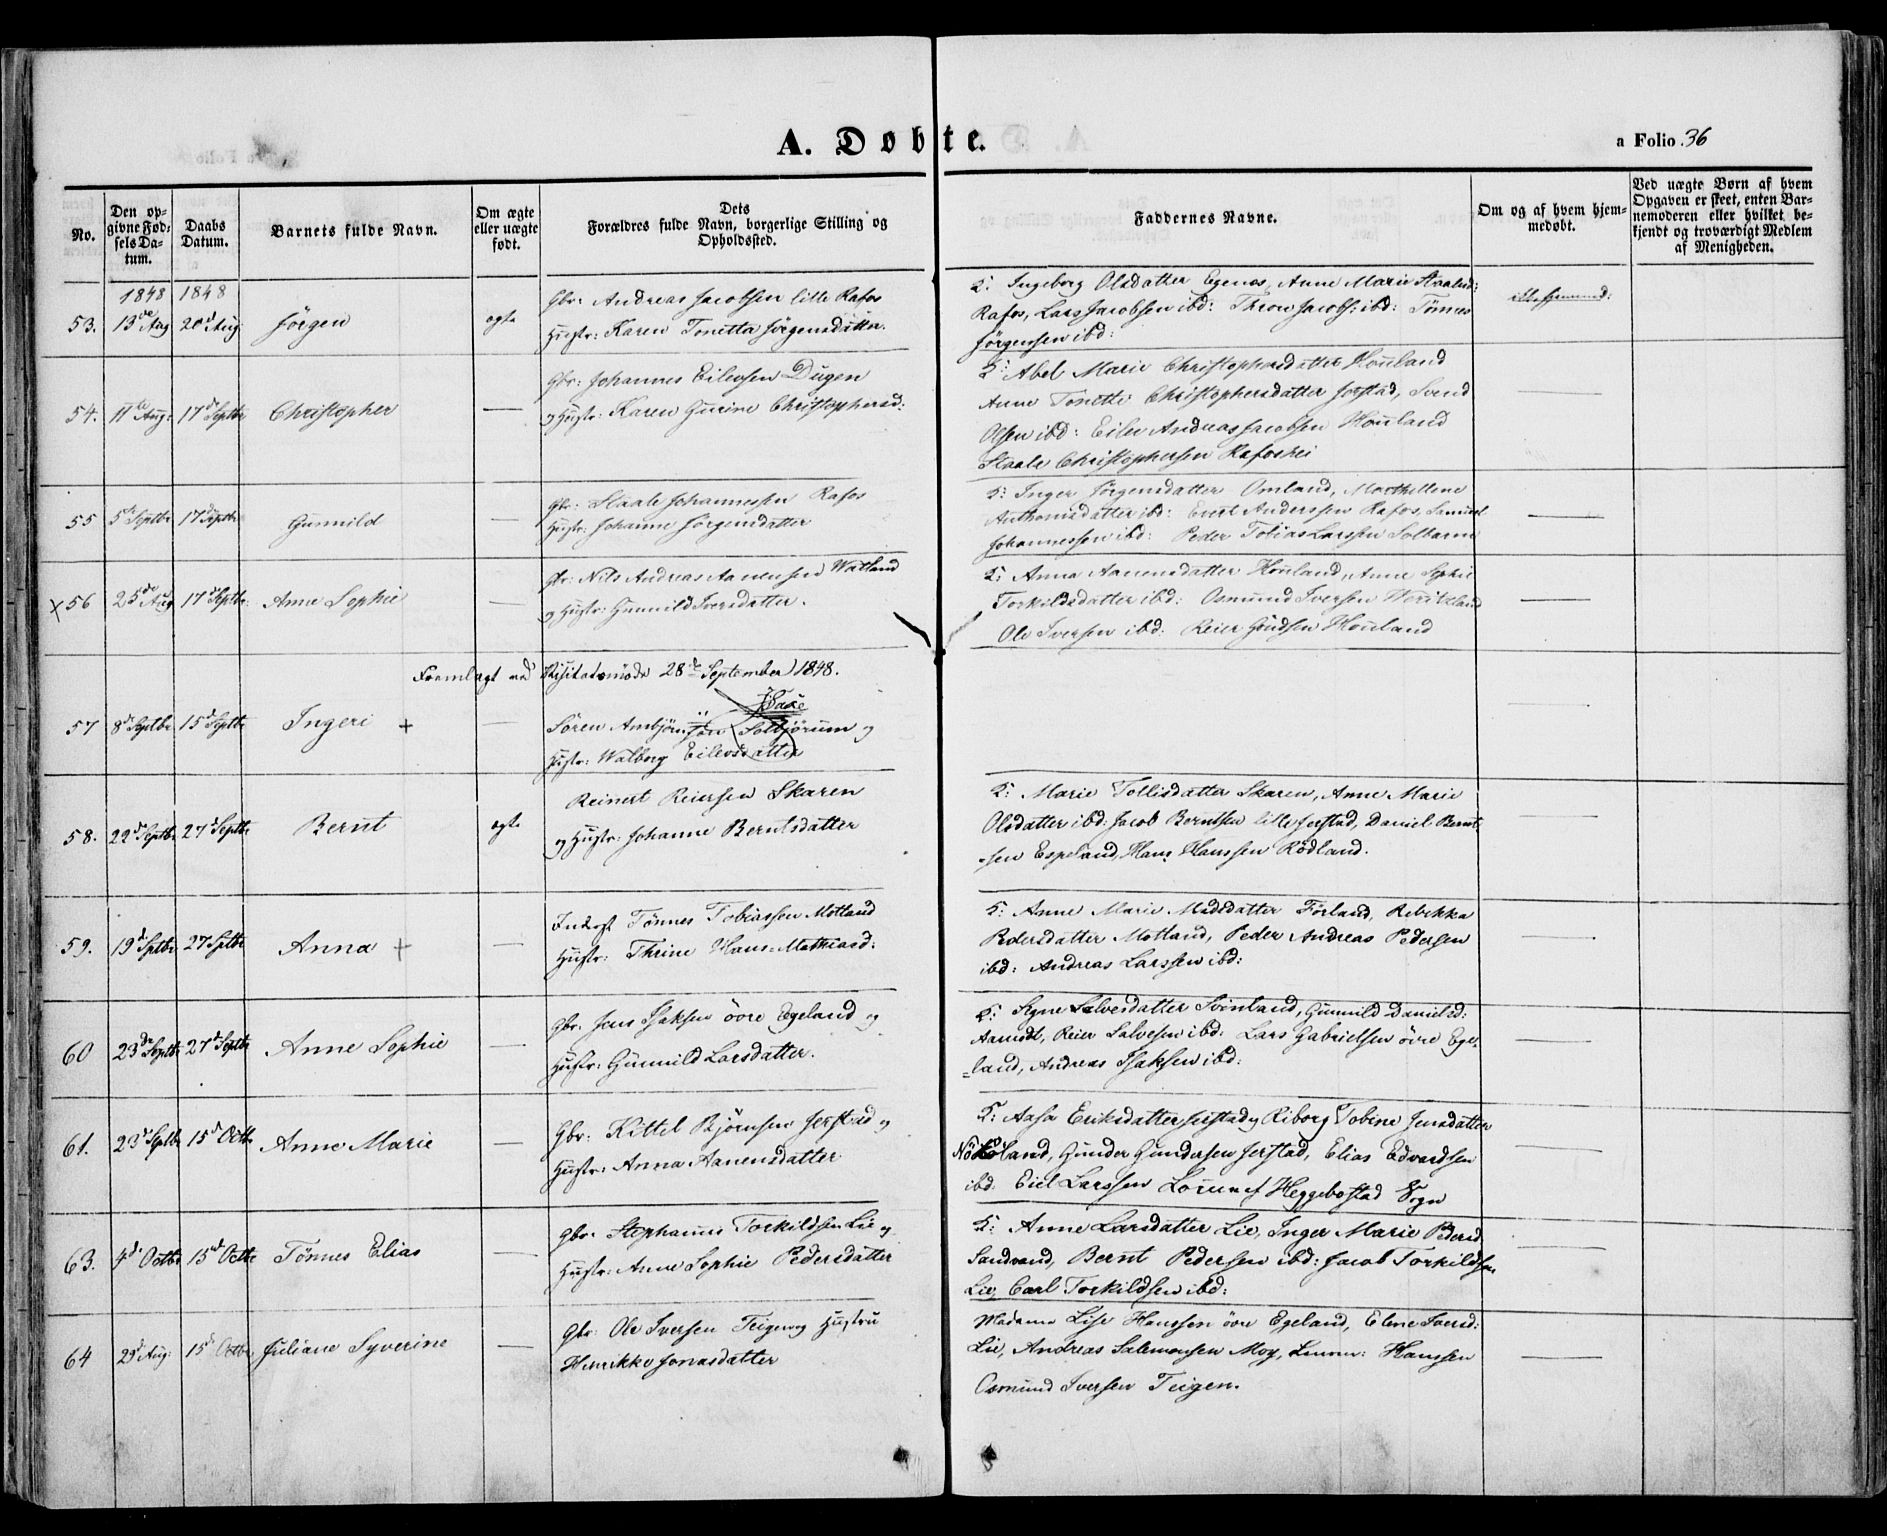 A. Døbte.
a Folio 36
No.
Den op-
givne Fød-
sels Da-
tum.
Daabs
Datum.
Barnets fulde Navn.
Om ægte
eller uægte
født.
Dets
Forældres fulde Navn, borgerlige Stilling og
Opholdssted.
Faddernes Navne.
Om og af hvem hjem-
medøbt.
Ved uægte Børn af hvem
Opgaven er skeet, enten Bar-
nemoderen eller hvilket be-
kjendt og troværdigt Medlem
af Menigheden.
1848 1848
53. 13de Aug 20d Aug Jörgen ægte
Gbr: Andreas Jacobsen lille Rafos
Hustr: Karen Tonetta Jörgensdatter.
F: Ingeborg Olsdatter Egenes, Anne Marie Staalesd:
Rafos, Lars Jacobsen ibd: Thron Jacobs: ibd: Tönnes
Jörgensen ibd:
54. 11te Aug: 17d Septbr Christopher —
Gbr: Johannes Eilevsen Dugen
og Hustr: Karen Gurine Christophersd:
F: Abel Marie Christophersdatter Houland
Anne Tonette Christophersdatter Jerstad, Svend
Olsen ibd: Eilev Andreas Jacobsen Houland
Staale Christophersen Rafoshei
—
55 5te Septbr 17d Septbr Gunnild —
Gbr: Staale Johannessen Rafos
Hustr: Johanne Jörgensdatter
F: Inger Jörgensdatter Omland, Marthelene
Anthonisdatter ibd: Evert Anderssen Rafos, Samuel
Johannessen ibd: Peder Tobias Larssen Solbarm
—
x 56 25de Aug 17d Septbr Anne Sophie —
Gbr: Nils Andreas Aanensen Watland
og Hustr: Gunnild Iversdatter.
F: Anna Aanensdatter Houland, Anne Sophie
Torkildsdatter ibd: Osmund Iversen
Ole Iversen ibd: Reier Gundsen Houland
—
Fremlagt ved Visitatsmöde 28de September 1848.
57 8d Septbr 15d Septbr Ingeri + —
Sören Ambjörnsen Solbjörum og
Hustr: Walborg Eilevsdatter
—
58. 22d Septbr 27d Septbr Bernt ægte
Reinert Reiersen Skaren
og Hustr: Johanne Berntsdatter
F: Marie Tollisdatter Skaren, Anne Marie
Olsdatter ibd: Jacob Berntsen lille Jerstad, Daniel Bernt-
-sen Espeland, Hans Hanssen Rödland.
—
59. 19d Septbr 27d Septbr Anna + —
Inderst Tönnes Tobiassen Motland
Hustr: Thrine Hans-Mathiasd:
F: Anne Marie Madsdatter Förland, Rebekka
Pedersdatter Motland, Peder Andreas Pedersen
ibd: Andreas Larssen ibd:
—
60 23de Septbr 27d Septbr Anne Sophie —
Gbr: Jens Isaksen övre Egeland og
Hustr: Gunnild Larsdatter.
F: Signe Salvesdatter Svinland, Gunnild Danielsd:
Aamodt, Reier Salvesen ibd: Lars Gabrielsen övre Ege-
=land, Andreas Isaksen ibd:
—
61. 23d Septbr 15d Octbr Anne Marie —
Gbr: Kittel Björnsen Jerstad og
Hustr: Anna Aanensdatter
F: Aasa Eriksdatter Jerstad, Riborg Tobine Jensdatter
Gunder Gundersen Jerstad, Elias Edvardsen
ibd: Eiel Larssen af Heggebostad Sogn
—
63. 4d Octbr 15d Octbr Tönnes Elias —
Gbr: Stephanus Torkildsen Lie og
Hustr: Anne Sophie Pedersdatter
F: Anne Larsdatter Lie, Inger Marie Pedersd.
Sandvand, Bernt Pedersen ibd: Jacob Torkildsen
Lie, Carl Torkildsen ibd:
—
64 29d Aug: 15d Octbr. Juliane Syverine —
Gbr: Ole Iversen Teigen og Hustru
Henrikke Jonasdatter
Madame Lise Hanssen övre Egeland, Elene Iversd:
Lie, Andreas Salemonsen Moy, Hanssen
Osmund Iversen Teigen.
—